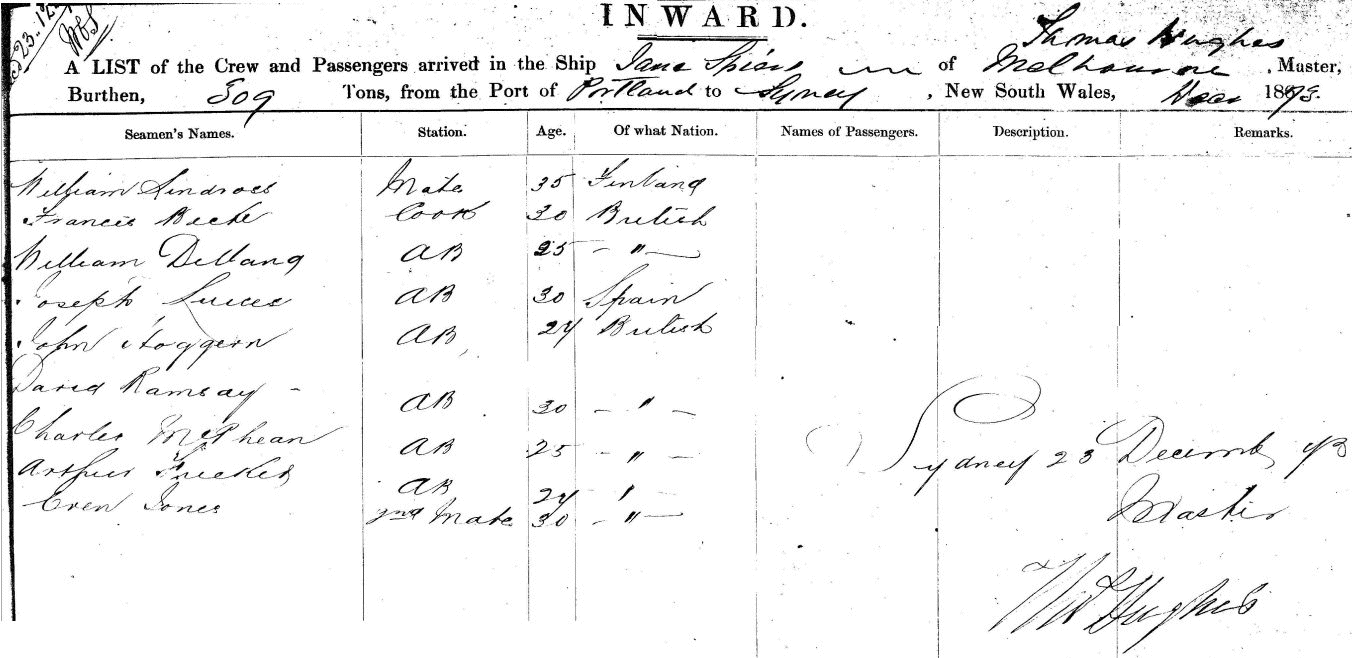 23. 12
INWARD.
Thomas Hughes
A LIST of the Crew and Passengers arrived in the Ship Jane Spiers of Melbourne, Master,
Burthen, 309 Tons, from the Port of Portland to Sydney, New South Wales, Dec 1873.
Seamen's Names. Station. Age. Of what Nation. Names of Passengers. Description. Remarks.
William Lindross Mate 35 Finland
Francis Beche Cook 30 British
William Dillang AB 25 - " -
Joseph AB 30 Spain
John Hoggern AB 24 British
David Ramsay - AB 30 - " -
Charles McPhean AB 25 - " -
Arthur AB 24 "
Even Jones 2nd Mate 30 - " -
Sydney 23 Decemb 73
Master
Thos Hughes